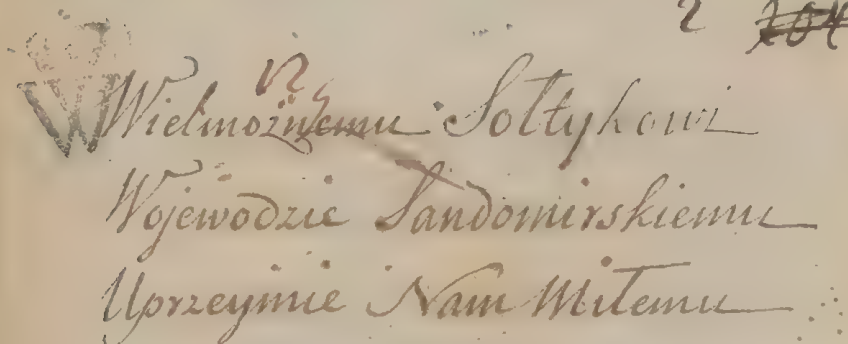 2 204
Wielmożnemu Sołtykowi
Wojewodzie Sandomirskiemu
Uprzeymie Nam Miłemu